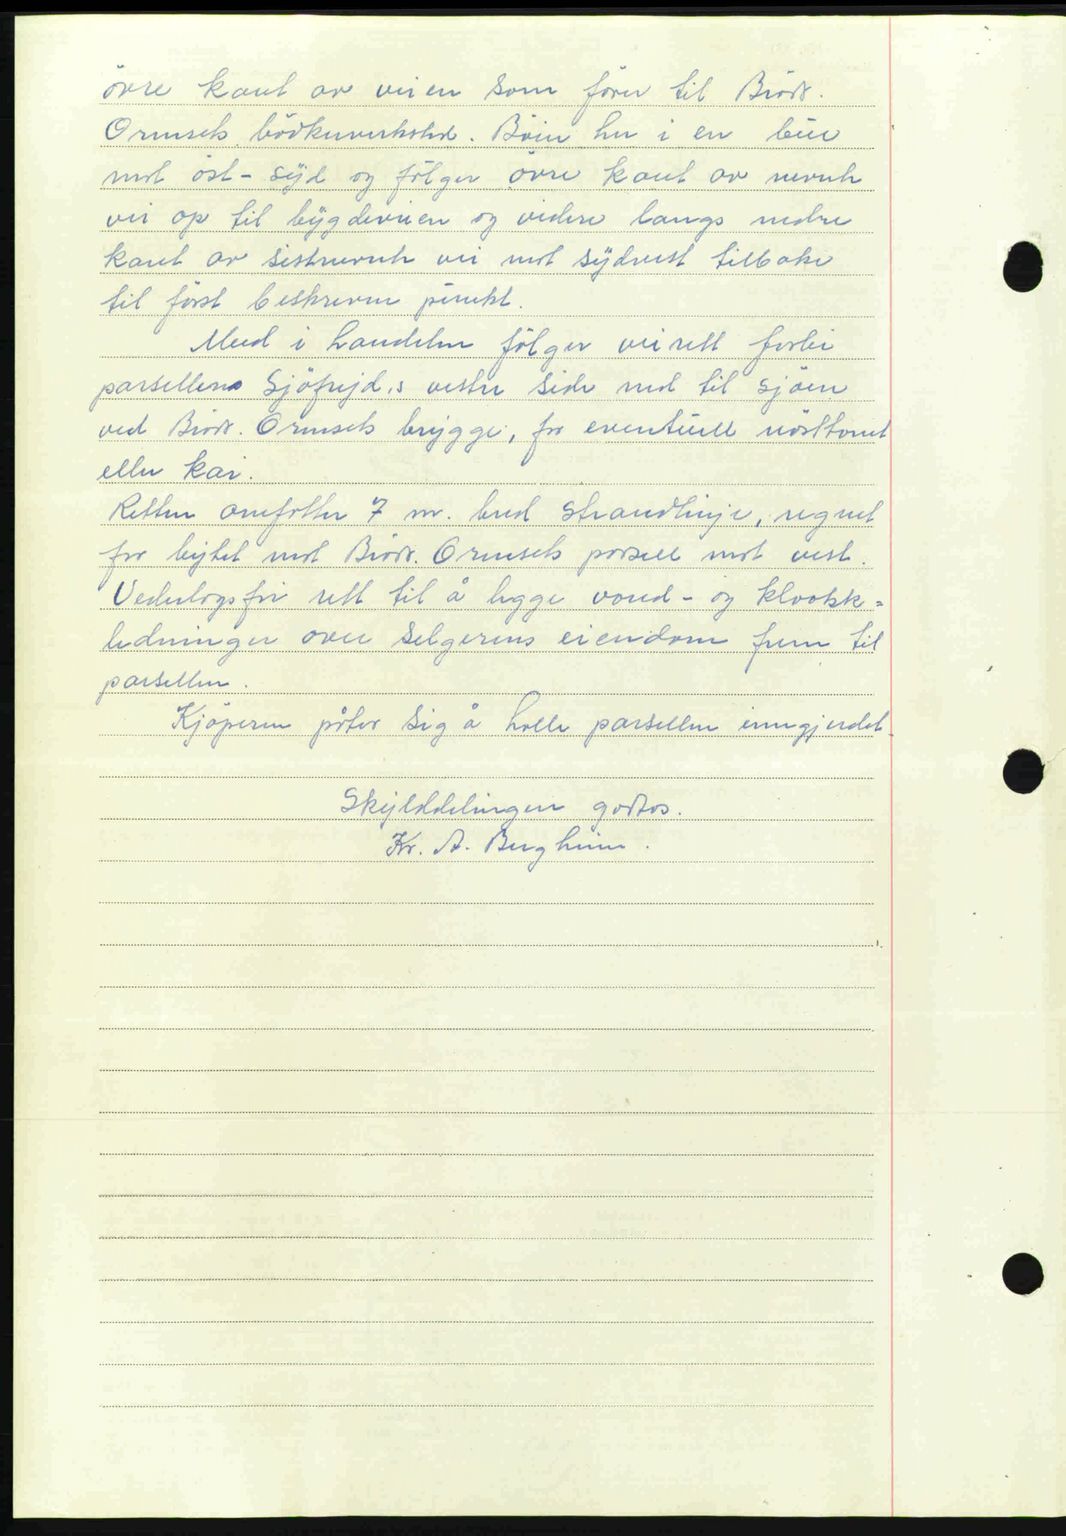 övre kant av veien som förer til Brödr.
Ormseths bödkerverksted. Böier her i en bue
mot öst-syd og fölger övre kant av nevnte
vei op til bygdeveien og videre langs nedre
kant av sistnevnte vei mot sydvest tilbake
til först beskrevne punkt.
Med i handelen fölger veirett forbi
parsellens Sjöfrejd,s vestre side ned til sjöen
ved Brödr. Ormseths brygge, for eventuell nösttomt
eller kai.
Retten omfatter 7 m. bred strandlinje, regnet
fra bytet mot Brödr. Ormseths parsell mot vest.
Vederlagsfri rett til å legge vand- og kloakk=
ledninger over selgerens eiendom frem til
parsellen.
Kjöperen påtar sig å holde parsellen inngjerdet.
Skylddelingen godtas.
Kr. A. Bergheim.